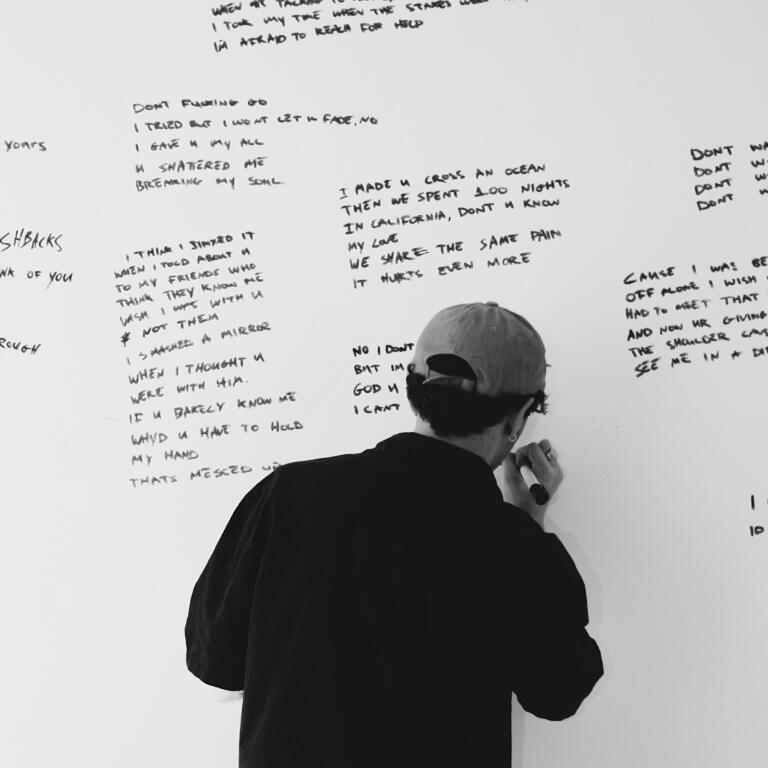 WHEN
I TOOK MY TIME WHEN THE STAKES WERE
IM AFRAID TO REACH FOR HELP
DONT FUCKING GO
I TRIED BUT I WONT LET U FADE, NO
I GAVE U MY ALL
U SHATTERED ME
BREAKING MY SOUL
YOURS
SHBACKS
NK OF YOU
ROUGH
I THINK I JINXED IT
WHEN I TOLD ABOUT U
TO MY FRIENDS WHO
THINK THEY KNOW ME
WISH I WAS WITH U
NOT THEM
I SMASHED A MIRROR
WHEN I THOUGHT U
WERE WITH HIM.
IF U BARELY KNOW ME
WHYD U HAVE TO HOLD
MY HAND
THATS MESSED UP
I MADE U CROSS AN OCEAN
THEN WE SPENT 100 NIGHTS
IN CALIFORNIA, DONT U KNOW
MY LOVE
WE SHARE THE SAME PAIN
IT HURTS EVEN MORE
NO I DONT
BUT IM
GOD U
I CANT
DONT WA
DONT W
DONT W
DONT W
CAUSE I WAS BE
OFF ALONE I WISH
HAD TO MEET THAT
AND NOW UR GIVING
THE SHOULDER CAU
SEE ME IN A DI
I
ID